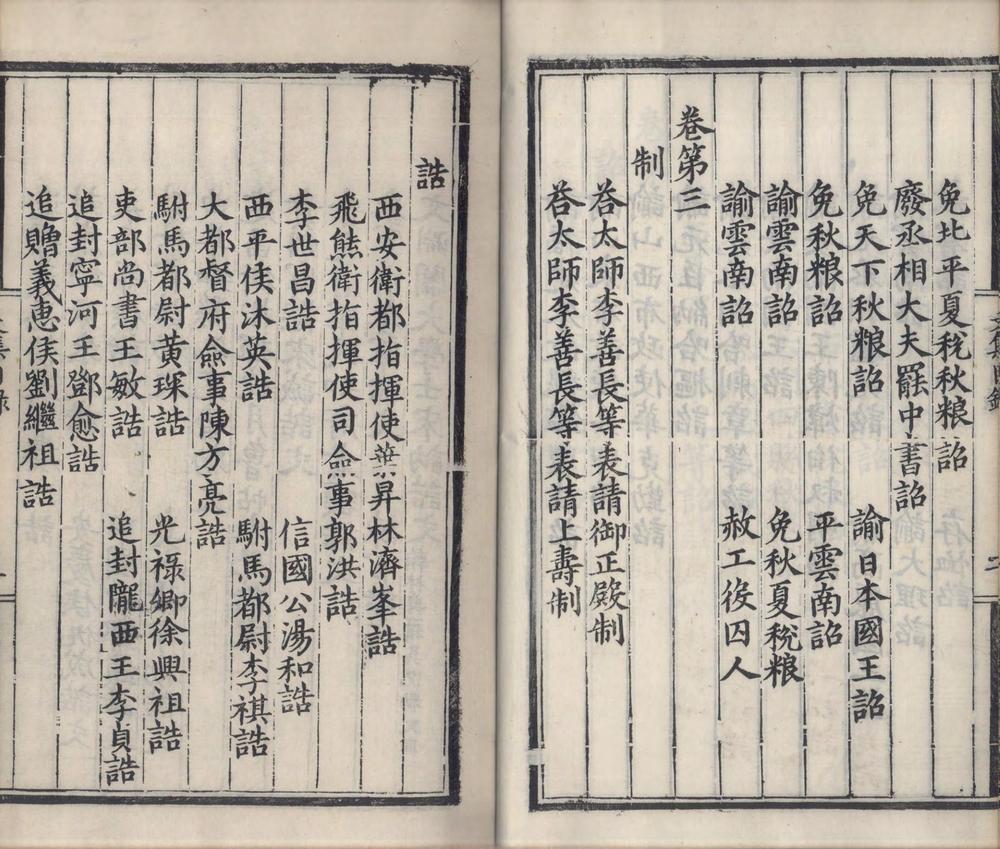 免北平夏稅秋粮詔
廢丞相大夫罷中書詔
免天下秋粮詔 諭日本國王詔
免秋粮詔 平雲南詔
諭雲南詔 免秋夏稅粮
諭雲南詔 赦工役囚人
卷第三
制
荅太師李善長等表請御正殿制
荅太師李善長等表請上壽制
誥
西安衛都指揮使葉昇林濟峯誥
飛熊衛指揮使司僉事郭洪誥
李世昌誥 信國公湯和誥
西平侯沐英誥 駙馬都尉李祺誥
大都督府僉事陳方亮誥
駙馬都尉黃琛誥 光祿卿徐興祖誥
吏部尚書王敏誥 追封隴西王李貞誥
追封寧河王鄧愈誥
追贈義惠侯劉繼祖誥